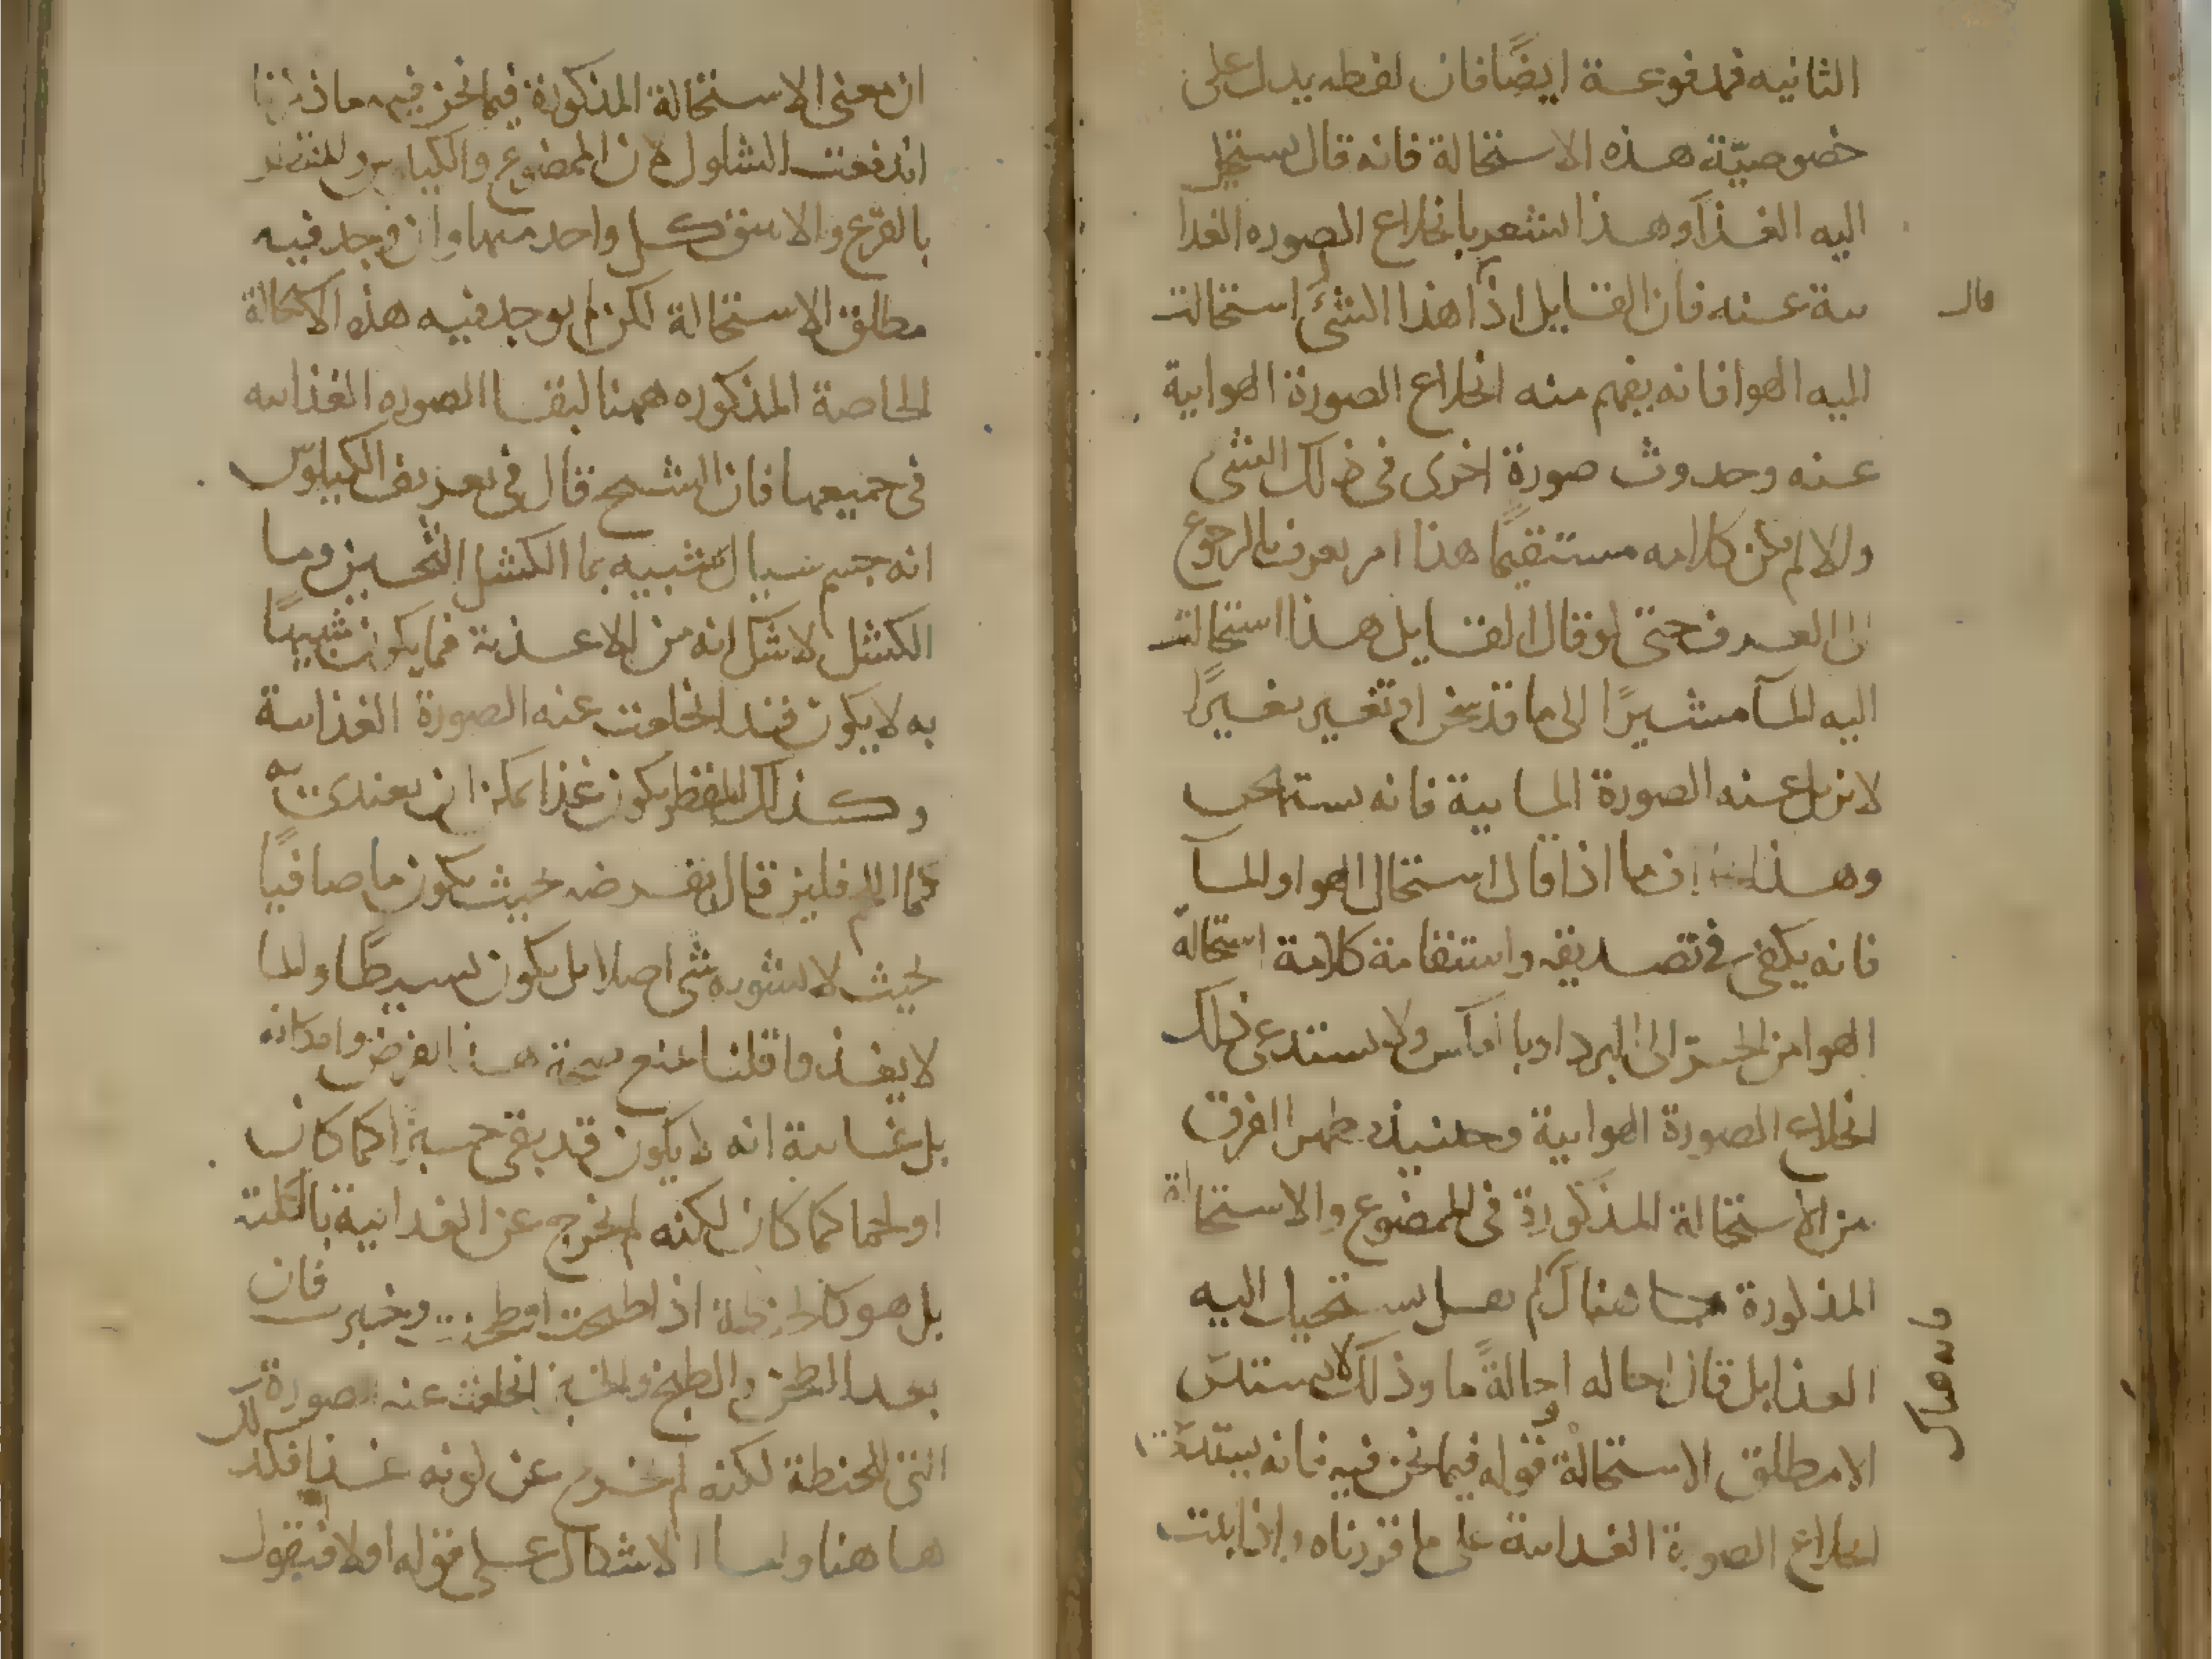 الثانيه فمدفوعة ايضًا فان لفظه يدل على
خصوصيّة هذه الاستحالة فانه قال يستحيل
اليه الغذآ وهذا يشعر بانخلاع الصوره الغذا
ىىة عنه فان القايل اذا هذا الشئ استحالت
قال
اليه الهوا فانه يفهم منه انخلاع الصورة الهوايية
عنه وحدوث صورة اخرى فى ذلك الشى
والا لم يكن كلامه مستقيمًا هذا امر يعرف بالرجوع
الى العرف حتى لو قال القايل هذا استحالت
اليه المآ مشيرًا الى ما قد سخن او تغير تغيرًا
لا يزيل عنه الصورة المايية فانه
وهذا ما اذا قال استحال الهوا والمآ
فانه يكفى فى تصديقه واستقامة كلامه استحالة
الهوا من الحر الى البرد او بالعكس ولا يستدعى ذلك
انخلاع الصورة الهوايية وحينيذ ظهر الفرق
من الاستحالة المذكورة فى الممضوغ والاستحالة
المذكورة هناك لم يقل يستحيل اليه
الغذا بل قال احاله احالةً ما وذلك لا يستدعى
الا مطلق الاستحالة وقوله فيما نحن فيه فانه
انخلاع الصورة الغذايية على ما قررناه واذا ثبت
ان معنى الاستحالة المذكورة فيما نحن فيه ما ذكرنا
اندفعت لان الممضوغ والكيلوس والمتقطر
بالقرع والانبيق كل واحد منها وان وجد فيه
مطلق الاستحالة لكن لم يوجد فيه هذه الاستحالة
الخاصة المذكوره ههنا لبقا الصوره الغذاييه
فى جميعها فان الشيخ قال فى تعريف الكيلوس
انه جسم سيال شبيه بما الكشك الثخين وما
الكشك لا شك انه من الاغذية فما يكون شبيهًا
به لا يكون قد انخلعت عنه الصورة الغذايية
وكذلك المقطر يكون غذا يمكن ان يغتدى به
فليز قال نفرضه بحيث يكون ما صافيًا
بحيث لا يشوبه شى اصلا بل يكون بسيطا والما
لا يغذوا قلنا نمنع صحة هذا الفرض وامكانه
بل غايية انه لا يكون قد بقى خبزا كما كان
او لحما كما كان لكنه لم يخرج عن الغدايية بالكلية
بل هو كالحنطة اذا طبخت او طحنت وخبزت فان
بعد الطحن والطبخ والخبز انخلعت عنه الصورة
التى للحنطة لكنه لم يخرج عن كونه غذا فكذلك
ها هنا واما الاشكال على قوله اولا فيقول